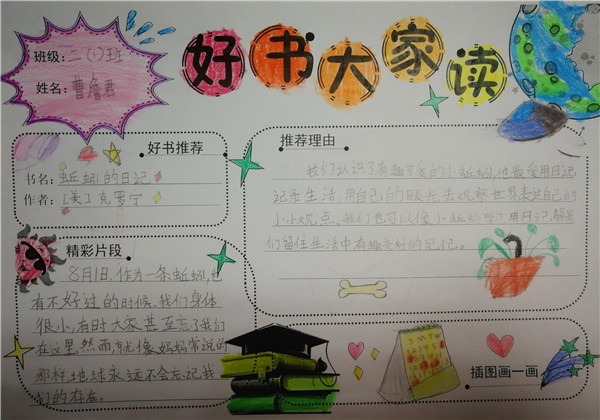 班级:二(1)班
姓名:曹
好书大家读
好书推荐
书名:蚯蚓的日记
作者:[美]克罗宁
推荐理由
我们认识了有趣可爱的小蚯蚓,他最爱用日记
记录生活,用自己的眼光去观察世界表达自己的
小小观点。我们也可以像小蚯蚓用日记,
们留住生活中有趣美好的记忆。
精彩片段
8月1日,作为一条蚯蚓,也
有不好过的时候。我们身体
很小,有时大家甚至忘了我们
在这里。然而,就像妈妈常说的
那样,地球永远不会忘记我
们的存在。
插图画一画